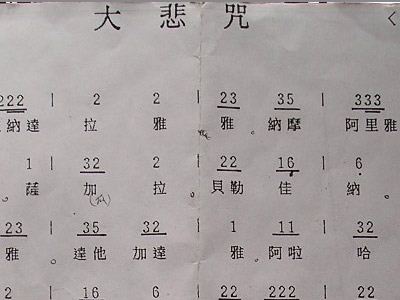 大悲咒
222 | 2 2 | 23 35 | 333
納達 拉 雅 雅。納摩 阿里雅
1 | 32 2 | 22 16 | 6
。薩 加 拉。貝勒佳 納。
23 | 35 32 | 1 11 | 32
雅。 達他 加達 雅。阿啦 哈
2 | 16 6 | 22 222 | 22